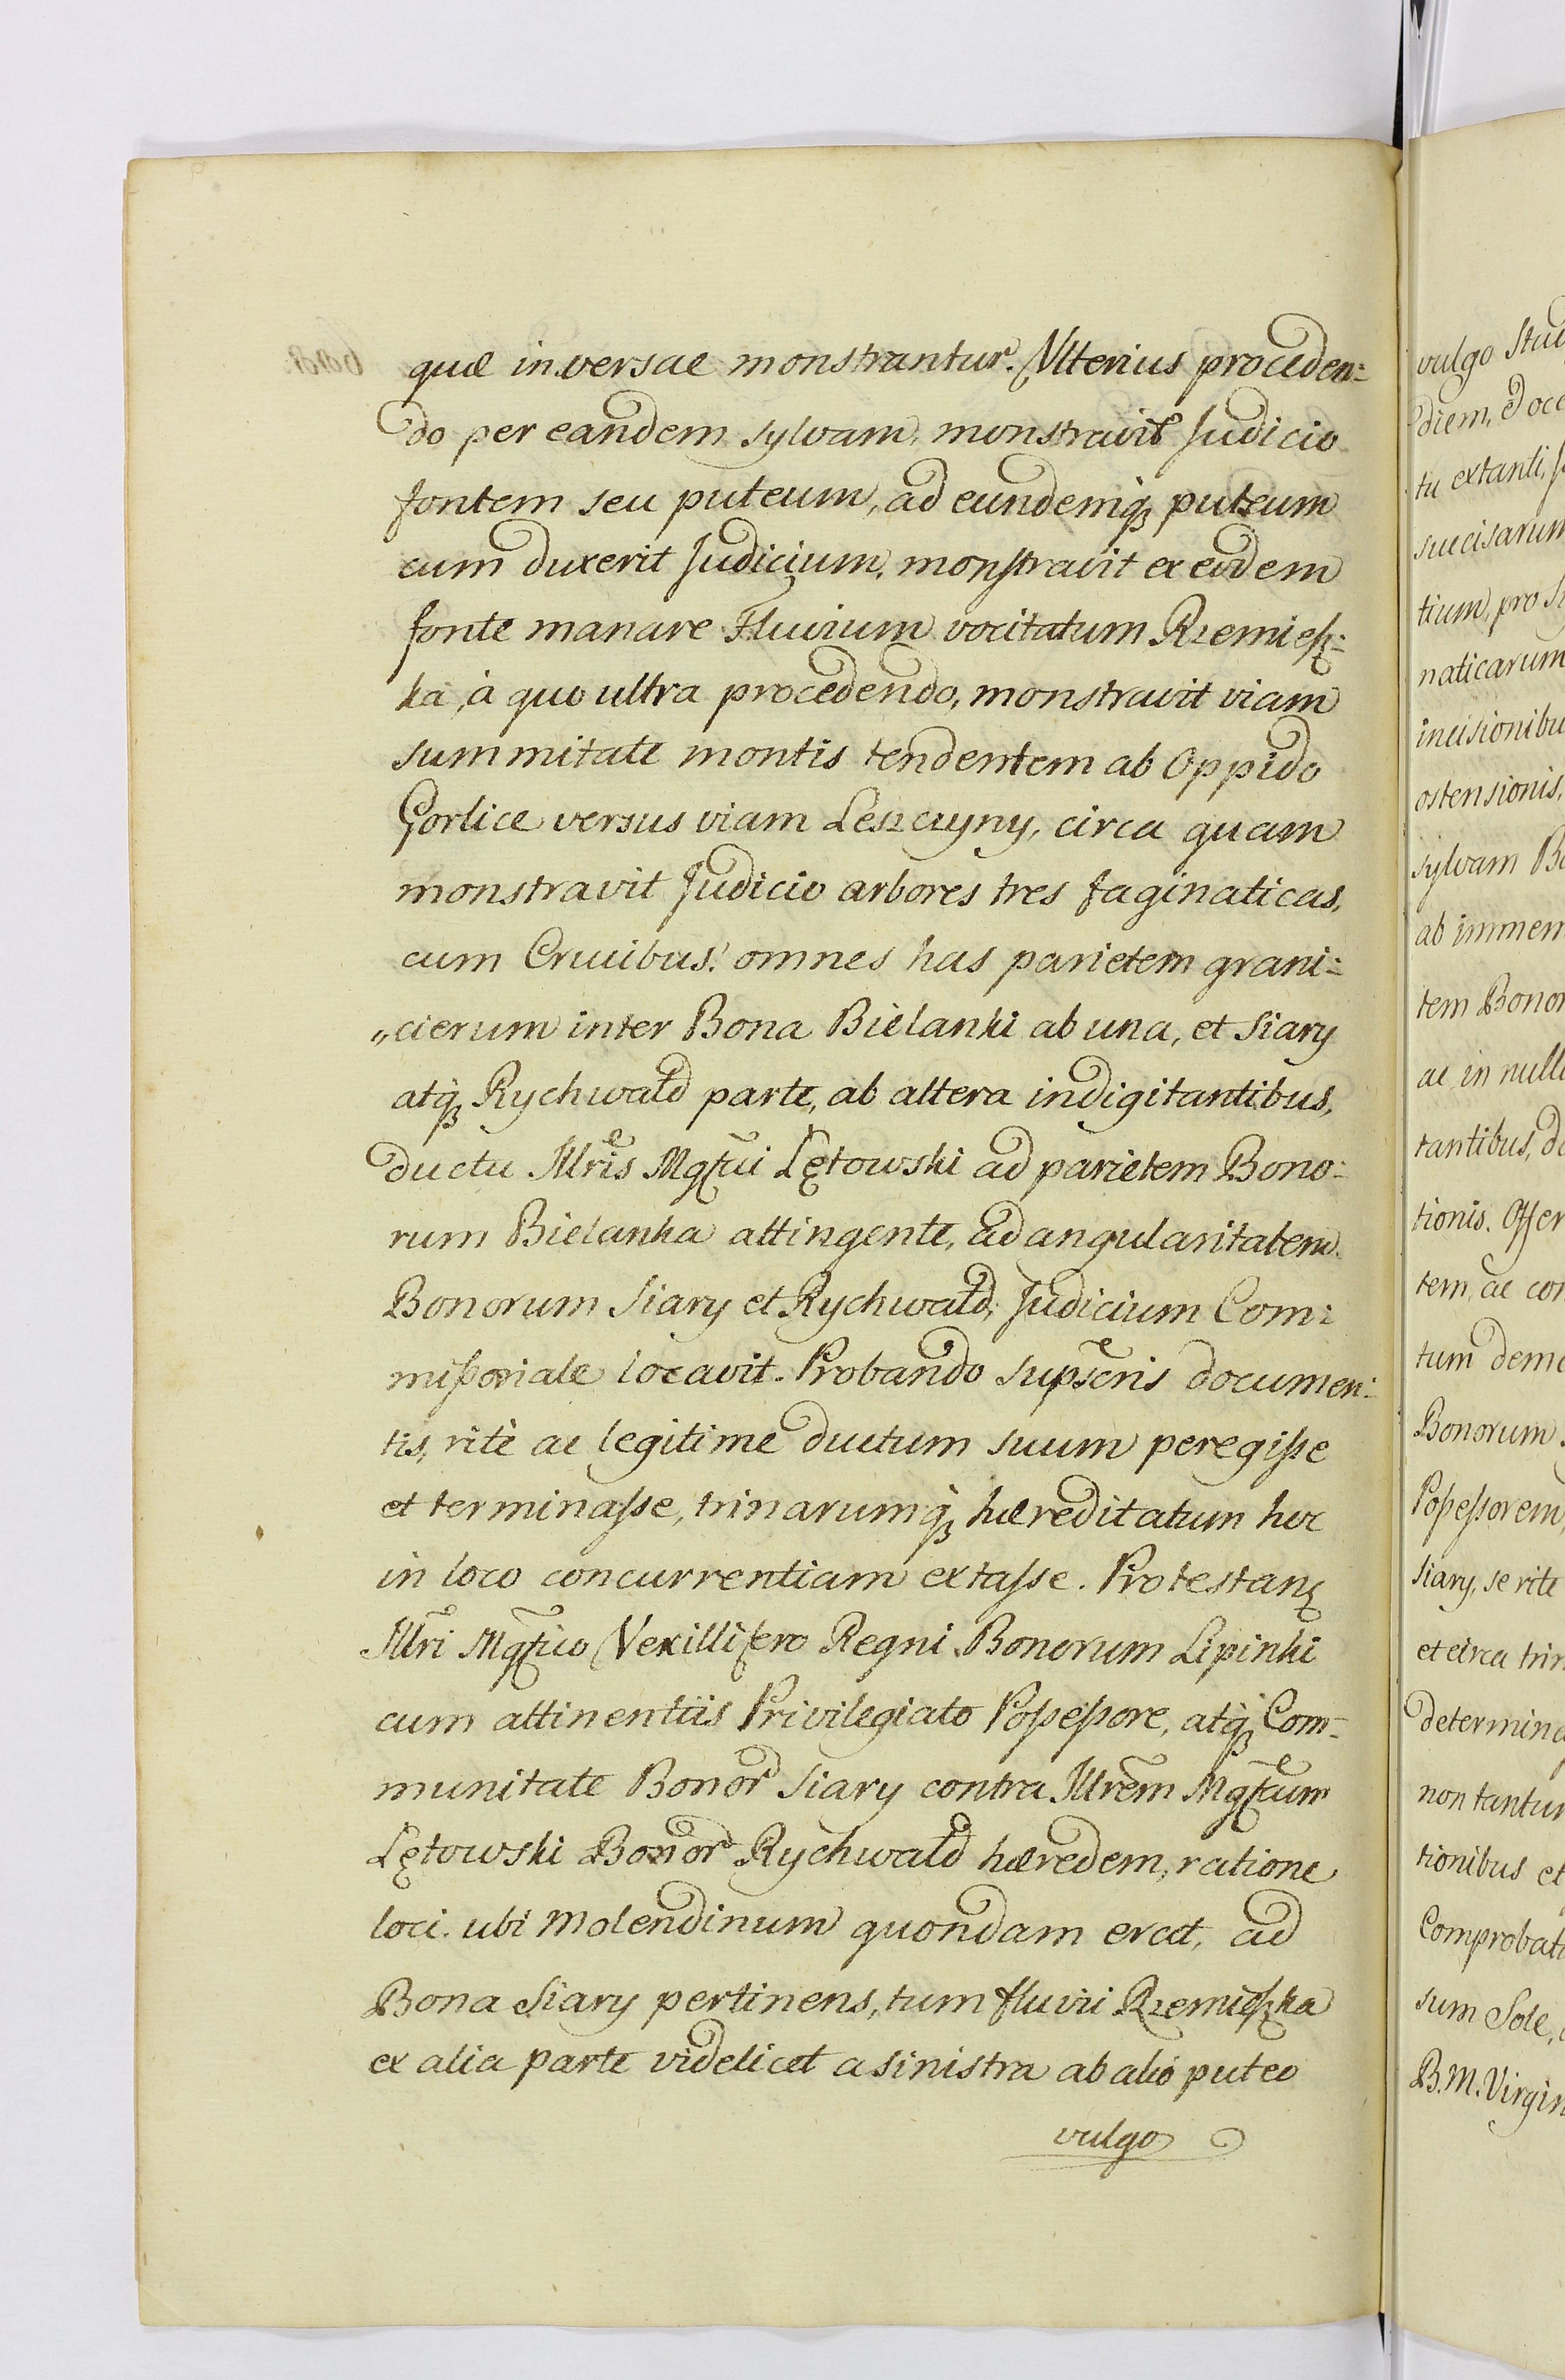 quæ inversae monstrantur. Ulterius proceden:
do per eandem sylvam, monstravit Judicio
fontem seu puteum, ad eundemq́ꝫ puteum
cum duxerit Judicium, monstravit ex eodem
fonte manare Fluvium vocitatum Rzemiesz:
ka, à quo ultra procedendo, monstravit viam
summitate montis tendentem ab Oppido
Gorlice versus viam Leszczyny, circa quam
monstravit Judicio arbores tres faginaticas,
cum Crucibus: omnes has parietem grani:
„cierum inter Bona Bielanki ab una, et Siary
atq́ꝫ Rychwald parte, ab altera indigitantibus,
ductu Illris Mgfci Lętowski ad parietem Bono:
rum Bielanka attingente, ad angularitatem
Bonorum Siary et Rychwald, Judicium Com:
missoriale locavit. Probando supscris documen:
tis, ritè ac legitime ductum suum peregisse
et terminasse, trinarumq́ꝫ hæreditatum hoc
in loco concurrentiam extasse. Protestanꝫ
Illri Mgfico Vexillifero Regni Bonorum Lipinki
cum attinentiis Privilegiato Possessore, atq́ꝫ Com-
munitate Bonor Siary contra Illrem Mgfcum
Lętowski Bonor Rychwald hæredem, ratione
loci ubi Molendinum quondam erat, ad
Bona Siary pertinens, tum fluvii Rzemieszka
ex alia parte videlicet a sinistra ab alio puteo
vulgo
vulgo
diem, edoc
tu extanti,
succisarum
tium, pro
naticarum
incisionibu
ostensionis,
sylvam B
ab immem
tem Bonor
ac in null
tantibus, d
tionis. Offer
tem ac con
tum dem
Bonorum
Possessorem,
Siary, se rite
et circa trin
determina
non tantum
tionibus et
Comprobat
sum Sole,
B. M. Virgin